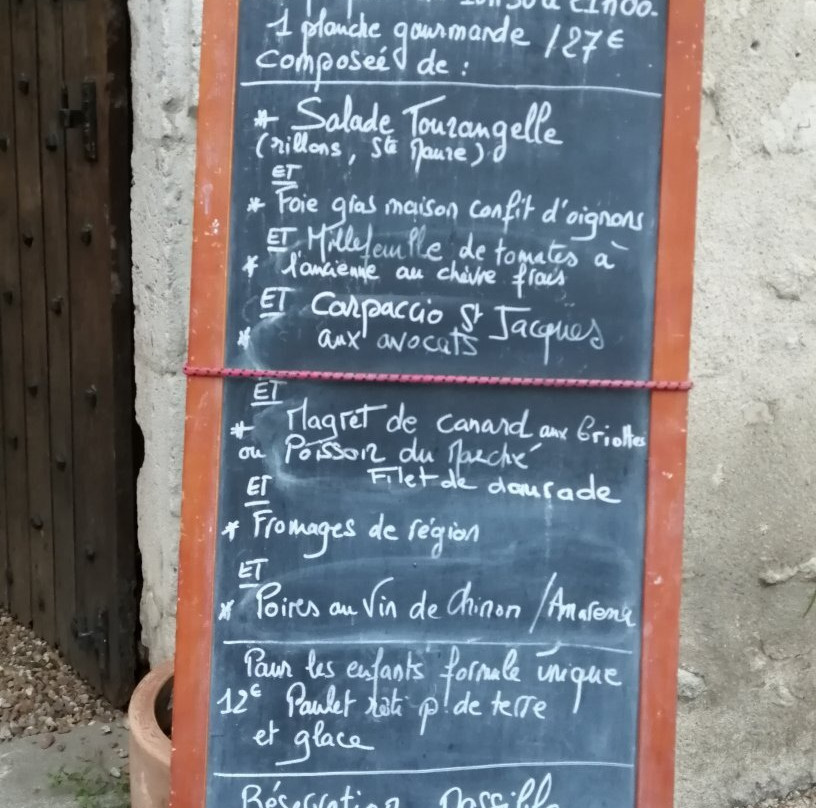 1 planche gourmande /27€
Composeé de :
* Salade Tourangelle
(rillons, Ste Maure)
ET
* Foie gras maison confit d'oignons
ET Millefeuille de tomates à
* l'ancienne au chèvre frais
ET Carpaccio St Jacques
* aux avocats
ET
* Magret de canard aux Griottes
ou Poisson du Marché
Filet de daurade
ET
* Fromages de région
ET
* Poires au Vin de Chinon / Amarena
Pour les enfants formule unique
12€ Poulet rôti p. de terre
et glace
Réservation Possible